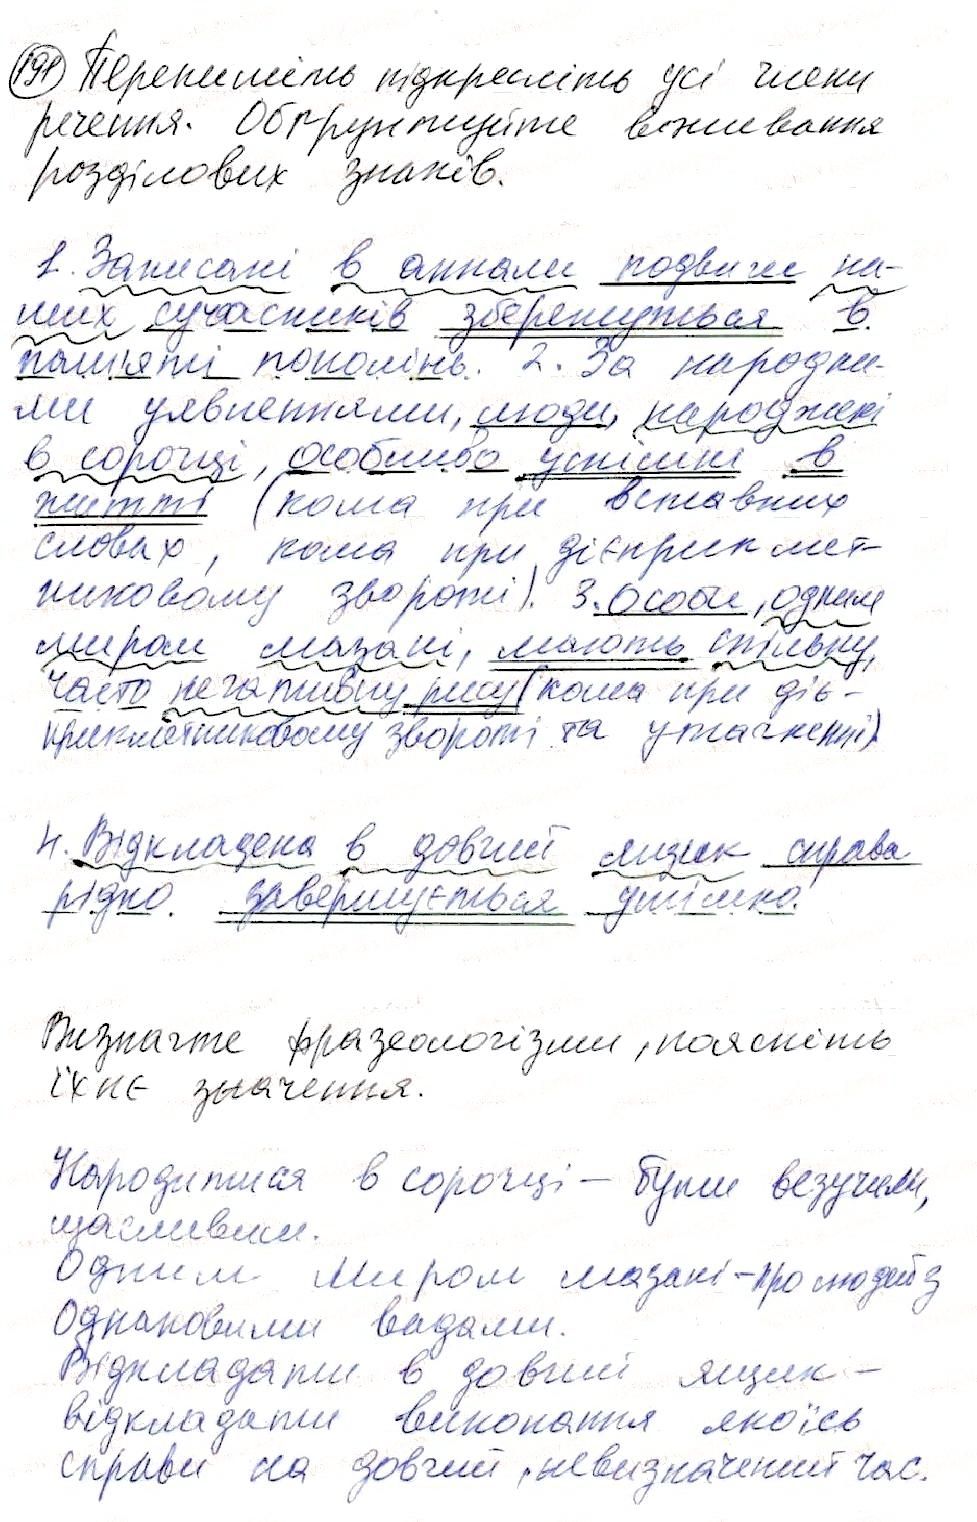 191 Перепишіть підкресліть усі члени
речення. Обґрунтуйте вживання
розділових знаків.
1. Записані в аннали подвиги на-
ших сучасників збережуться в
пам'яті поколінь. 2. За народни-
ми уявленнями, люди, народжені
в сорочці, особливо успішні в
житті (кома при вставних
словах, кома при дієприкмет-
никовому звороті). 3. Особи, одним
миром мазані, мають спільну,
часто негативну рису (кома при діє-
прикметниковому звороті та уточненні)
4. Відкладена в довгий ящик справа
рідко завершується успішно.
Визначте фразеологізми, поясніть
їхнє значення.
Народитися в сорочці – бути везучим,
щасливим.
Одним миром мазані – про людей з
однаковими вадами.
Відкладати в довгий ящик –
відкладати виконання якоїсь
справи на довгий, невизначений час.